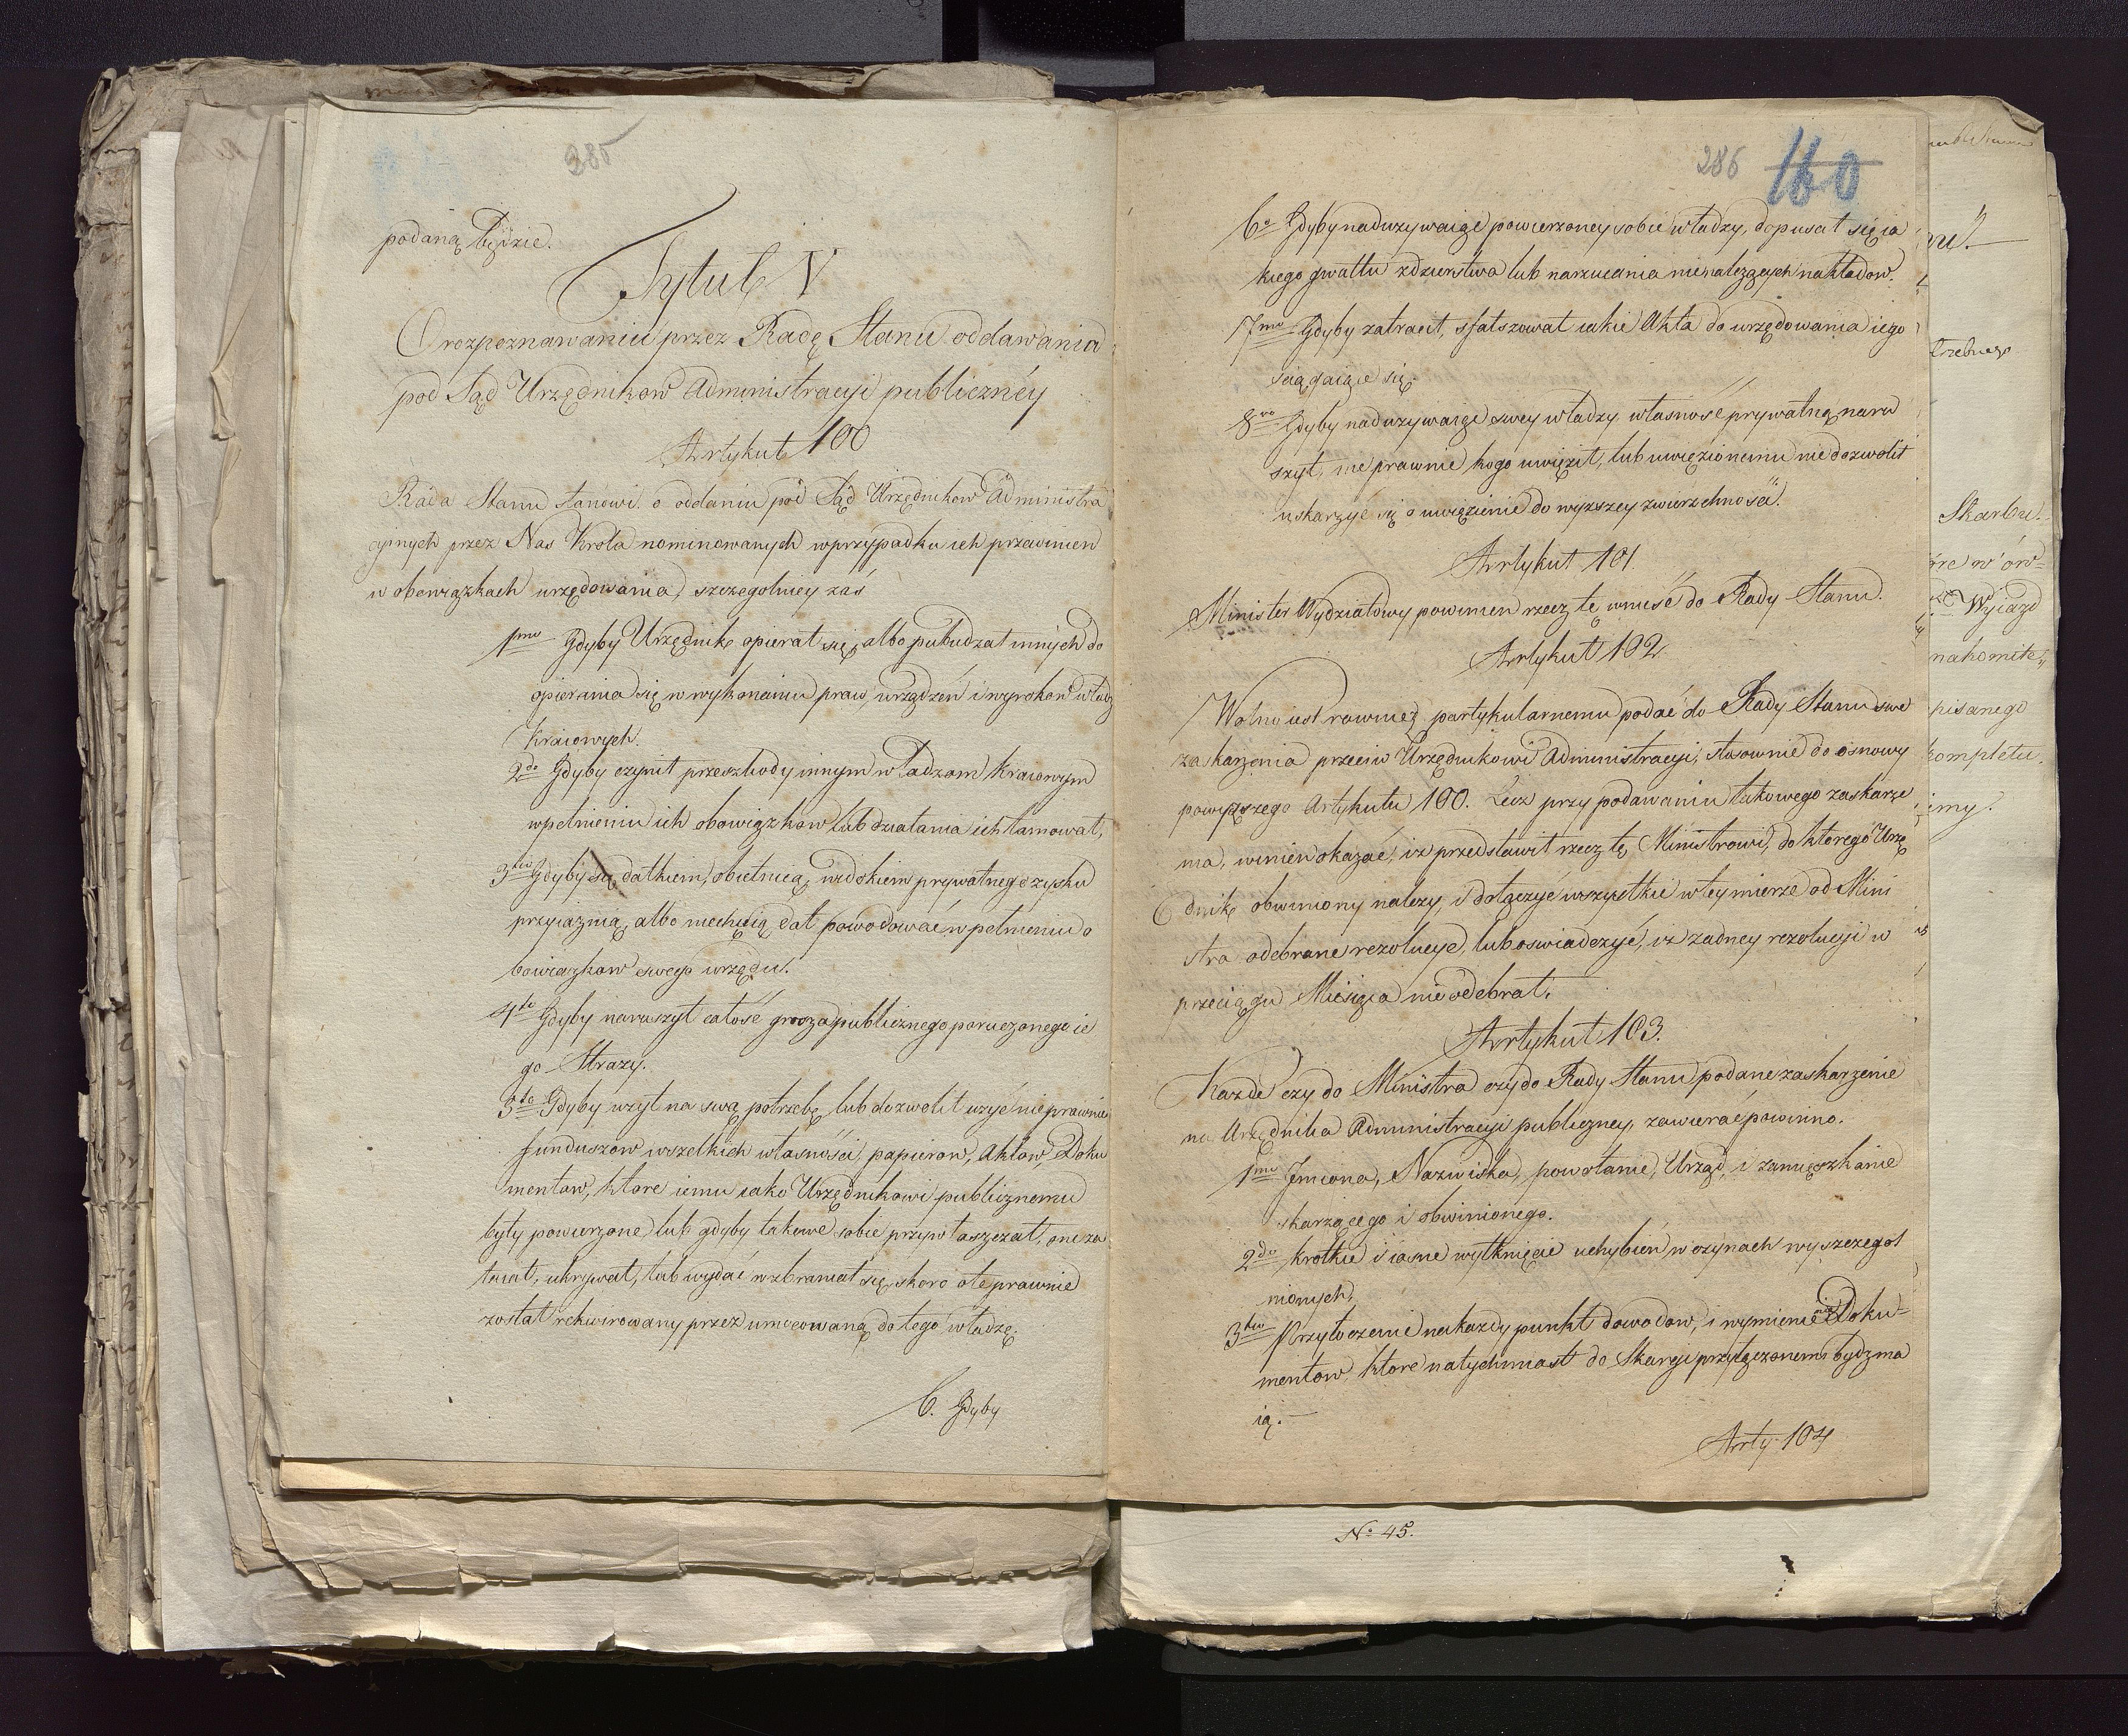 385
podaną będzie.
Tytuł V
O rozpoznawaniu przez Radę Stanu oddawania
pod Sąd Urzędnikow Administracyi publiczney
Artykuł 100
Rada Stanu stanowi o oddaniu pod Sąd Urzędnikow Administra
cyinych przez Nas Krola nominowanych w przypadku ich przewinien
w obowiązkach urzędowania, szczegolniey zaś
1mo Gdyby Urzędnik opierał się, albo pobudzał innych do
opierania się w wykonaniu praw, urządzeń i wyrokow władz
Kraiowych.
2do Gdyby czynił przeszkody innym władzom Kraiowym
wpełnieniu ich obowiązkow lub działania ich tamował,
3tio Gdyby się datkiem, obietnicą, widokiem prywatnego zysku
przyiaznią, albo niechęcią dał powodować w pełnieniu o
bowiązkow swego urzędu.
4to Gdyby naruszył całość grosza publicznego poruczonego ie
go Straży.
5to Gdyby użył na swą potrzebę lub dozwolił użyć nieprawnie
funduszow wszelkich własności, papierow, Aktow, Doku
mentow, ktore iemu iako Urzędnikowi publicznemu
były powierzone lub gdyby takowe sobie przywłaszczał, one za
tracał, ukrywał, lub wydać wzbraniał się, skoro o te prawnie
został rekwirowany przez umocowaną do tego władzę.
6. Gdyby
286 160
6o Gdyby nadużywaiąc powierzoney sobie władzy, dopuścił się ia
kiego gwałtu zdzierstwa lub narzucania nienależących nakładow.
7mo Gdyby zatracił, sfałszował iakie Akta do urzędowania iego
sciągaiące się.
8vo Gdyby nadużywaiąc swey władzy własność prywatną naru
szył, nie prawnie kogo uwięził, lub uwięzionemu nie dozwolił
uskarżyć się o uwięzienie do wyższey zwierzchności.
Artykuł 101
Minister Wydziałowy powinien rzecz tę wnieść do Rady Stanu.
Artykuł 102
Wolno iest rownież partykularnemu podać do Rady Stanu swe
zaskarżenia przeciw Urzędnikowi Administracyi, stosownie do osnowy
powyższego Artykułu 100. Lecz przy podawaniu takowego zaskarże
nia, winien okazać, iż przedstawił rzecz tę Ministrowi, do ktorego Urzę
dnik obwiniony należy, i dołączyć wszystkie w tey mierze od Mini
stra odebrane rezolucye, lub oswiadczyć, iż żadney rezolucyi w
przeciągu Miesiąca nie odebrał.
Artykuł 103.
Każde czy do Ministra czy do Rady Stanu podane zaskarżenie
na Urzędnika Administracyi publiczney, zawierać powinno.
1mo Imiona, Nazwiska, powołanie, Urząd, i zamieszkanie
skarżącego i obwinionego.
2do krotkie i iasne wytknięcie uchybień w czynach wyszczegol
nionych,
3tio Przytoczenie na każdy punkt dowodow, i wymienienie Doku-
mentow, ktore natychmiast do Skargi przyłączonemi bydz ma
ią.
Arty. 104
No 45.
trzebnego
Skarbu.
Wyiazd
nakomite
pisanego
kompletu.